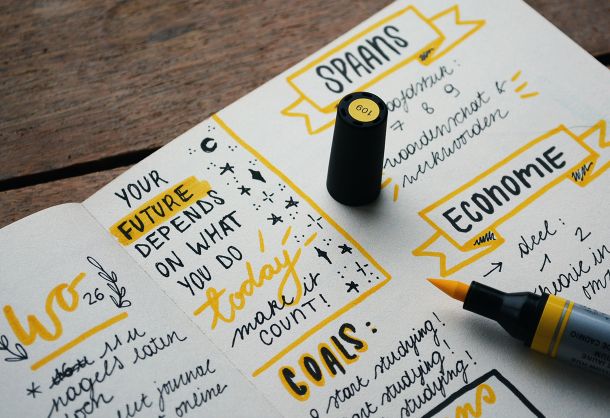 Wo
26
11 u
nagels laten
journal
online
YOUR
FUTURE
DEPENDS
ON WHAT
YOU DO
today
make it
COUNT!
GOALS:
start studying!
start studying!
studying!
SPAANS
7 8 9
woordenschat &
werkwoorden
ECONOMIE
→ deel:
1 2
109